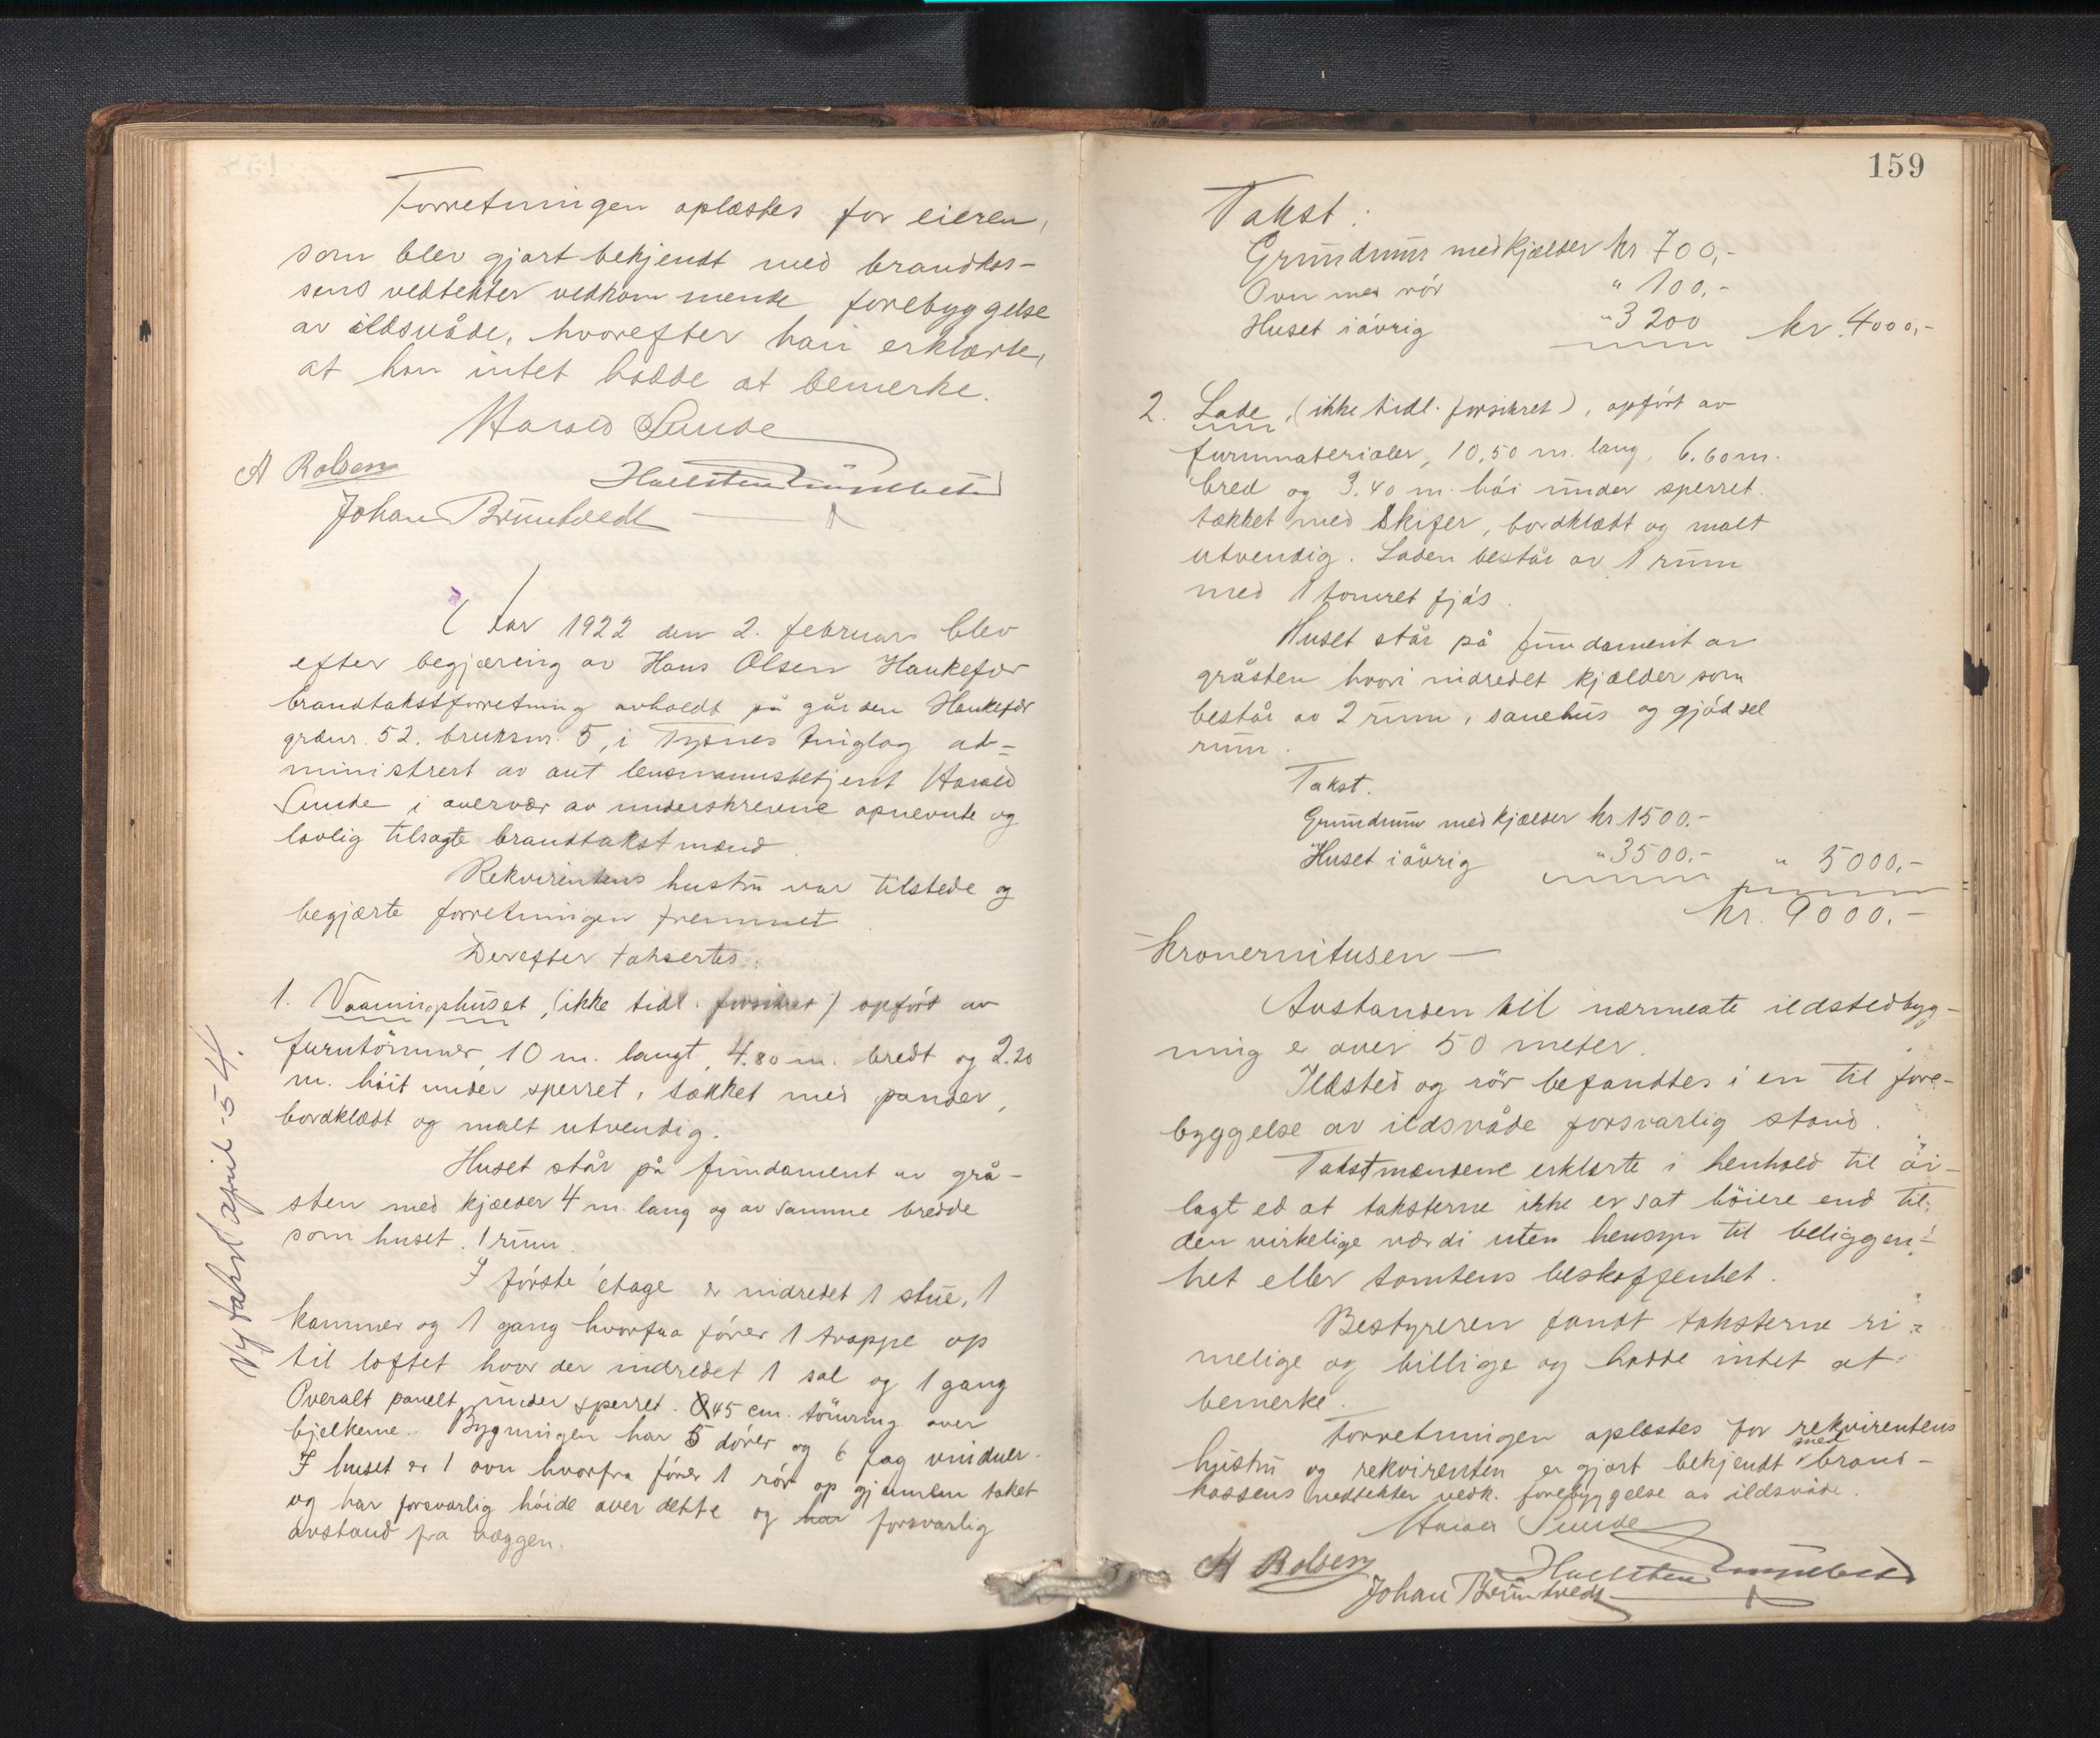 Forretningen oplæstes for eieren,
som blev gjort bekjendt med brandkas-
sens vedtekter vedkommende forebyggelse
av ildsvåde, hvorefter han erklærte,
at han intet hadde at bemerke.
Harald Sunde
A Rolsen
Johan Bruntvedt
År 1922 den 2. februar blev
efter begjæring av Hans Olsen Haukefær
brandtakstforretning avholdt på gården Haukefær
grdnr. 52. bruksnr. 5, i Tysnes tinglag ad-
ministrert av aut lensmannsbetjent Harald
Sunde i overvær av underskrevne opnevnte og
lovlig tilsagte brandtakstmænd.
Rekvirentens hustru var tilstede og
begjærte forretningen fremmet.
Derefter taksertes:
1. Vaaningshuset, (ikke tidl. forsikret) opført av
furutømmer, 10 m. langt, 4.80 m. bredt og 2.20
m. høit under sperret, tækket med pander,
bordklædt og malt utvendig.
Huset står på fundament av grå-
sten med kjælder 4 m. lang og av samme bredde
som huset. 1 rum.
I første etage er indredet 1 stue, 1
kammer og 1 gang hvorfra fører 1 trappe op
til loftet hvor der indredet 1 sal og 1 gang
Overalt panelt under sperret. 45 cm. tømring over
bjelkerne. Bygningen har 5 dører og 6 fag vinduer.
I huset er 1 ovn hvorfra fører 1 rør op gjennem taket
og har forsvarlig høide over dette og har forsvarlig
avstand fra væggen.
Ny takst april -54.
159
Takst:
Grundmur med kjælder kr. 700,-
Ovn med rør " 100,-
Huset i øvrig " 3200 kr. 4000,-
2. Lade, (ikke tidl. forsikret), opført av
furumaterialer, 10,50 m. lang, 6.60 m.
bred og 3.40 m. høi under sperret.
tækket med skifer, bordklædt og malt
utvendig. Laden består av 1 rum
med 1 tømret fjøs.
Huset står på fundament av
gråsten hvori indredet kjælder som
består av 2 rum, sauehus og gjødsel
rum.
Takst.
Grundmur med kjælder kr. 1500.-
Huset i øvrig " 3500.- " 5000,-
kr. 9000.-
- kronernitusen -
Avstanden til nærmeste ildstedbyg-
ning er over 50 meter.
Ildsted og rør befandtes i en til fore-
byggelse av ildsvåde forsvarlig stand.
Takstmændene erklærte i henhold til av-
lagt ed at taksterne ikke er sat høiere end til
den virkelige værdi uten hensyn til beliggen-
het eller tomtens beskaffenhet.
Bestyreren fandt taksterne ri-
melige og billige og hadde intet at
bemerke.
Forretningen oplæstes for rekvirentens
hustru og rekvirenten er gjort bekjendt med brand-
kassens vedtekter vedk. forebyggelse av ildsvåde.
Harald Sunde
A Rolsen
Johan Bruntvedt